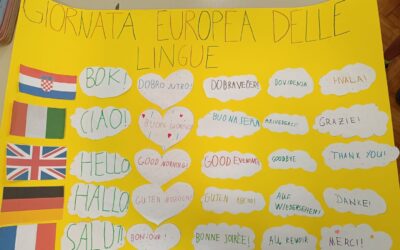 GIORNATA EUROPEA DELLE
LINGUE
BOK! DOBRO JUTRO! DOBRA VEČER! DOVIĐENJA HVALA!
CIAO! BUON GIORNO! BUONA SERA ARIVEDERCI! GRAZIE!
HELLO GOOD MORNING! GOOD EVENING! GOODBYE THANK YOU!
HALLO GUTEN MORGEN! GUTEN ABEND! AUF WIEDERSEHEN! DANKE!
SALUT! BONJOUR! BONNE SOIRÉE! AU REVOIR MERCI!